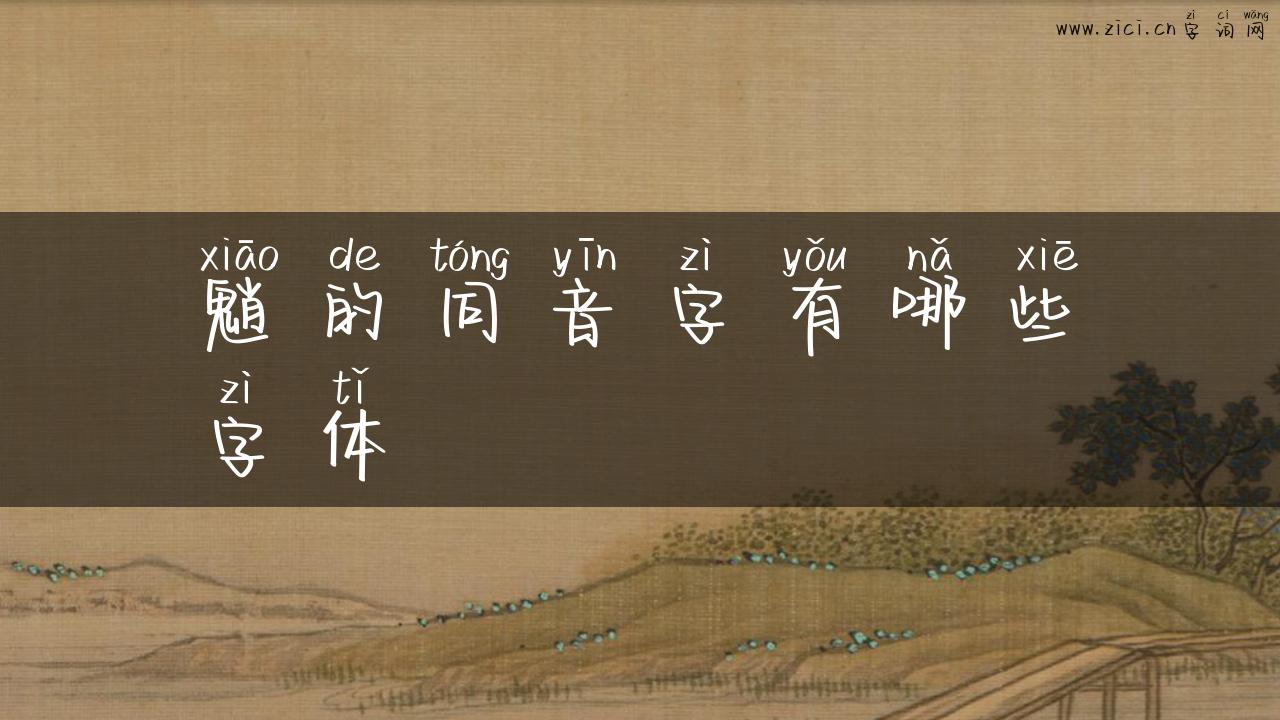 zì cí wǎng
www.zici.cn字词网
xiāo de tóng yīn zì yǒu nǎ xiē
魈的同音字有哪些
zì tǐ
字体